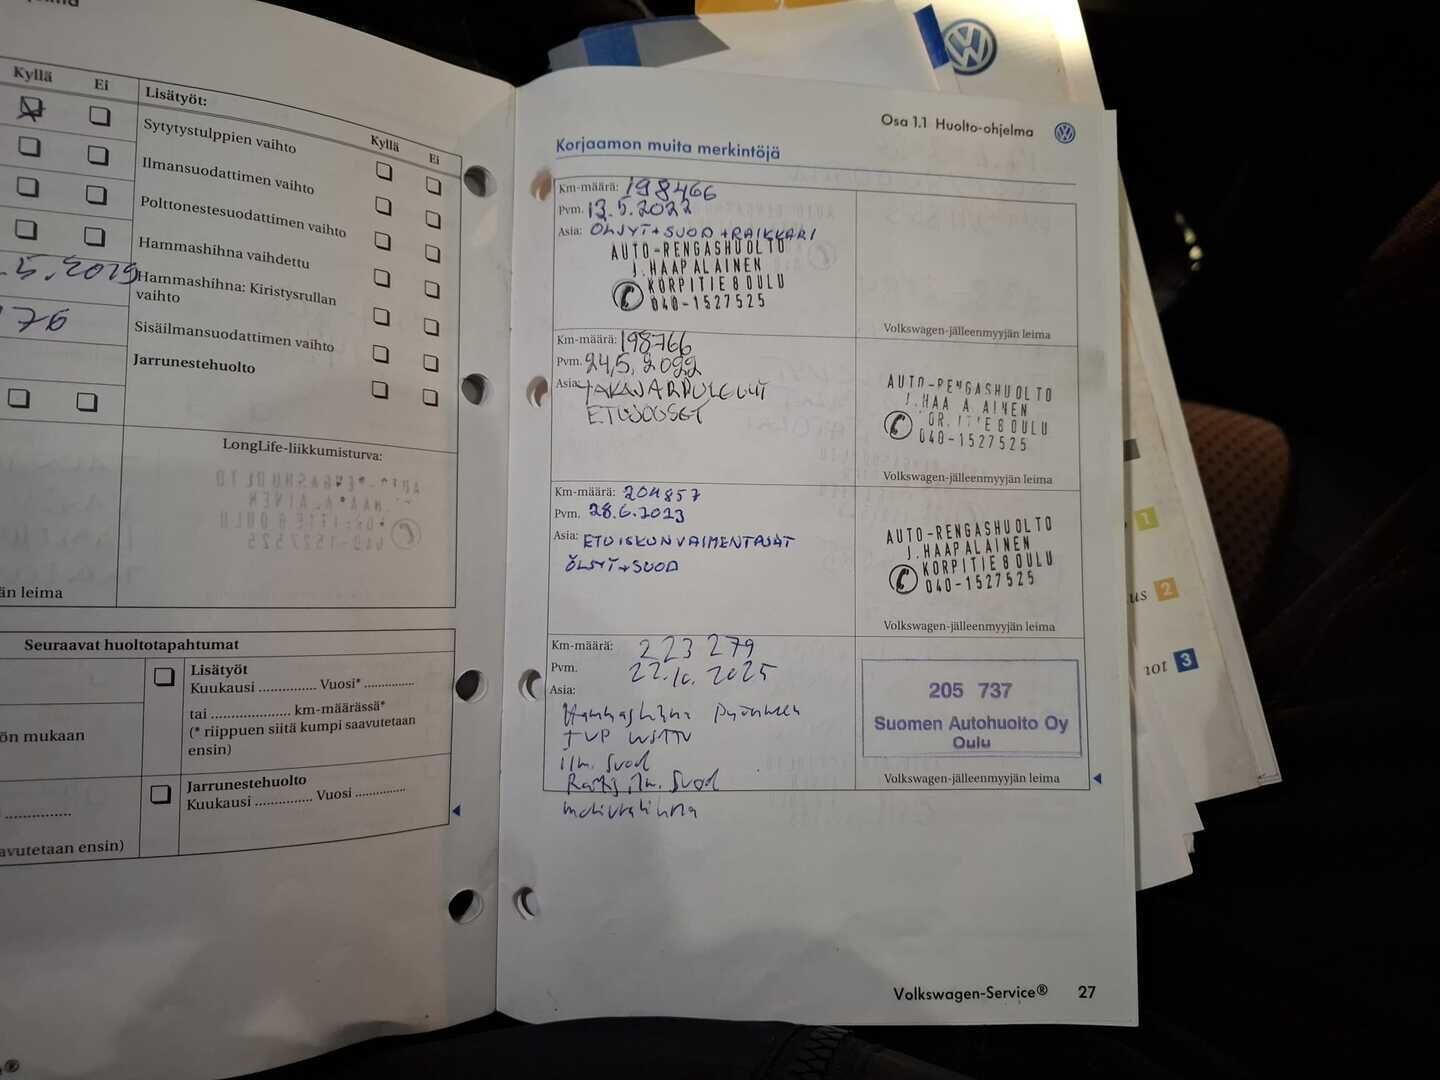 Kyllä Ei
Lisätyöt:
Kyllä Ei
Sytytystulppien vaihto
Ilmansuodattimen vaihto
Polttonestesuodattimen vaihto
Hammashihna vaihdettu
5.2019
Hammashihna: Kiristysrullan
vaihto
76
Sisäilmansuodattimen vaihto
Jarrunestehuolto
LongLife-liikkumisturva:
än leima
Seuraavat huoltotapahtumat
Lisätyöt
Kuukausi ............... Vuosi* .............
tai .................... km-määrässä*
(* riippuen siitä kumpi saavutetaan
ensin)
ön mukaan
Jarrunestehuolto
Kuukausi .............. Vuosi .............
avutetaan ensin)
Osa 1.1 Huolto-ohjelma
Korjaamon muita merkintöjä
Km-määrä: 198466
Pvm. 13.5.2022
Asia: ÖLJYT+SUOD+RAIKKARI
AUTO-RENGASHUOLTO
J.HAAPALAINEN
KORPITIE 8 OULU
040-1527525
Volkswagen-jälleenmyyjän leima
Km-määrä: 198766
Pvm. 24.5.2022
Asia:
ETUJOUSET
AUTO-RENGASHUOLTO
J.HAA A.AINEN
8 OULU
040-1527525
Volkswagen-jälleenmyyjän leima
Km-määrä: 204857
Pvm. 28.6.2023
Asia: ETUISKUNVAIMENTAJAT
ÖLJYT+SUOD
AUTO-RENGASHUOLTO
J.HAAPALAINEN
KORPITIE 8 OULU
040-1527525
Volkswagen-jälleenmyyjän leima
Km-määrä: 223 279
Pvm. 22.10.2025
Asia:
Hammashihna
ilm. suod
Raitis ilm. suod
205 737
Suomen Autohuolto Oy
Oulu
Volkswagen-jälleenmyyjän leima
Volkswagen-Service® 27
1
us 2
not 3